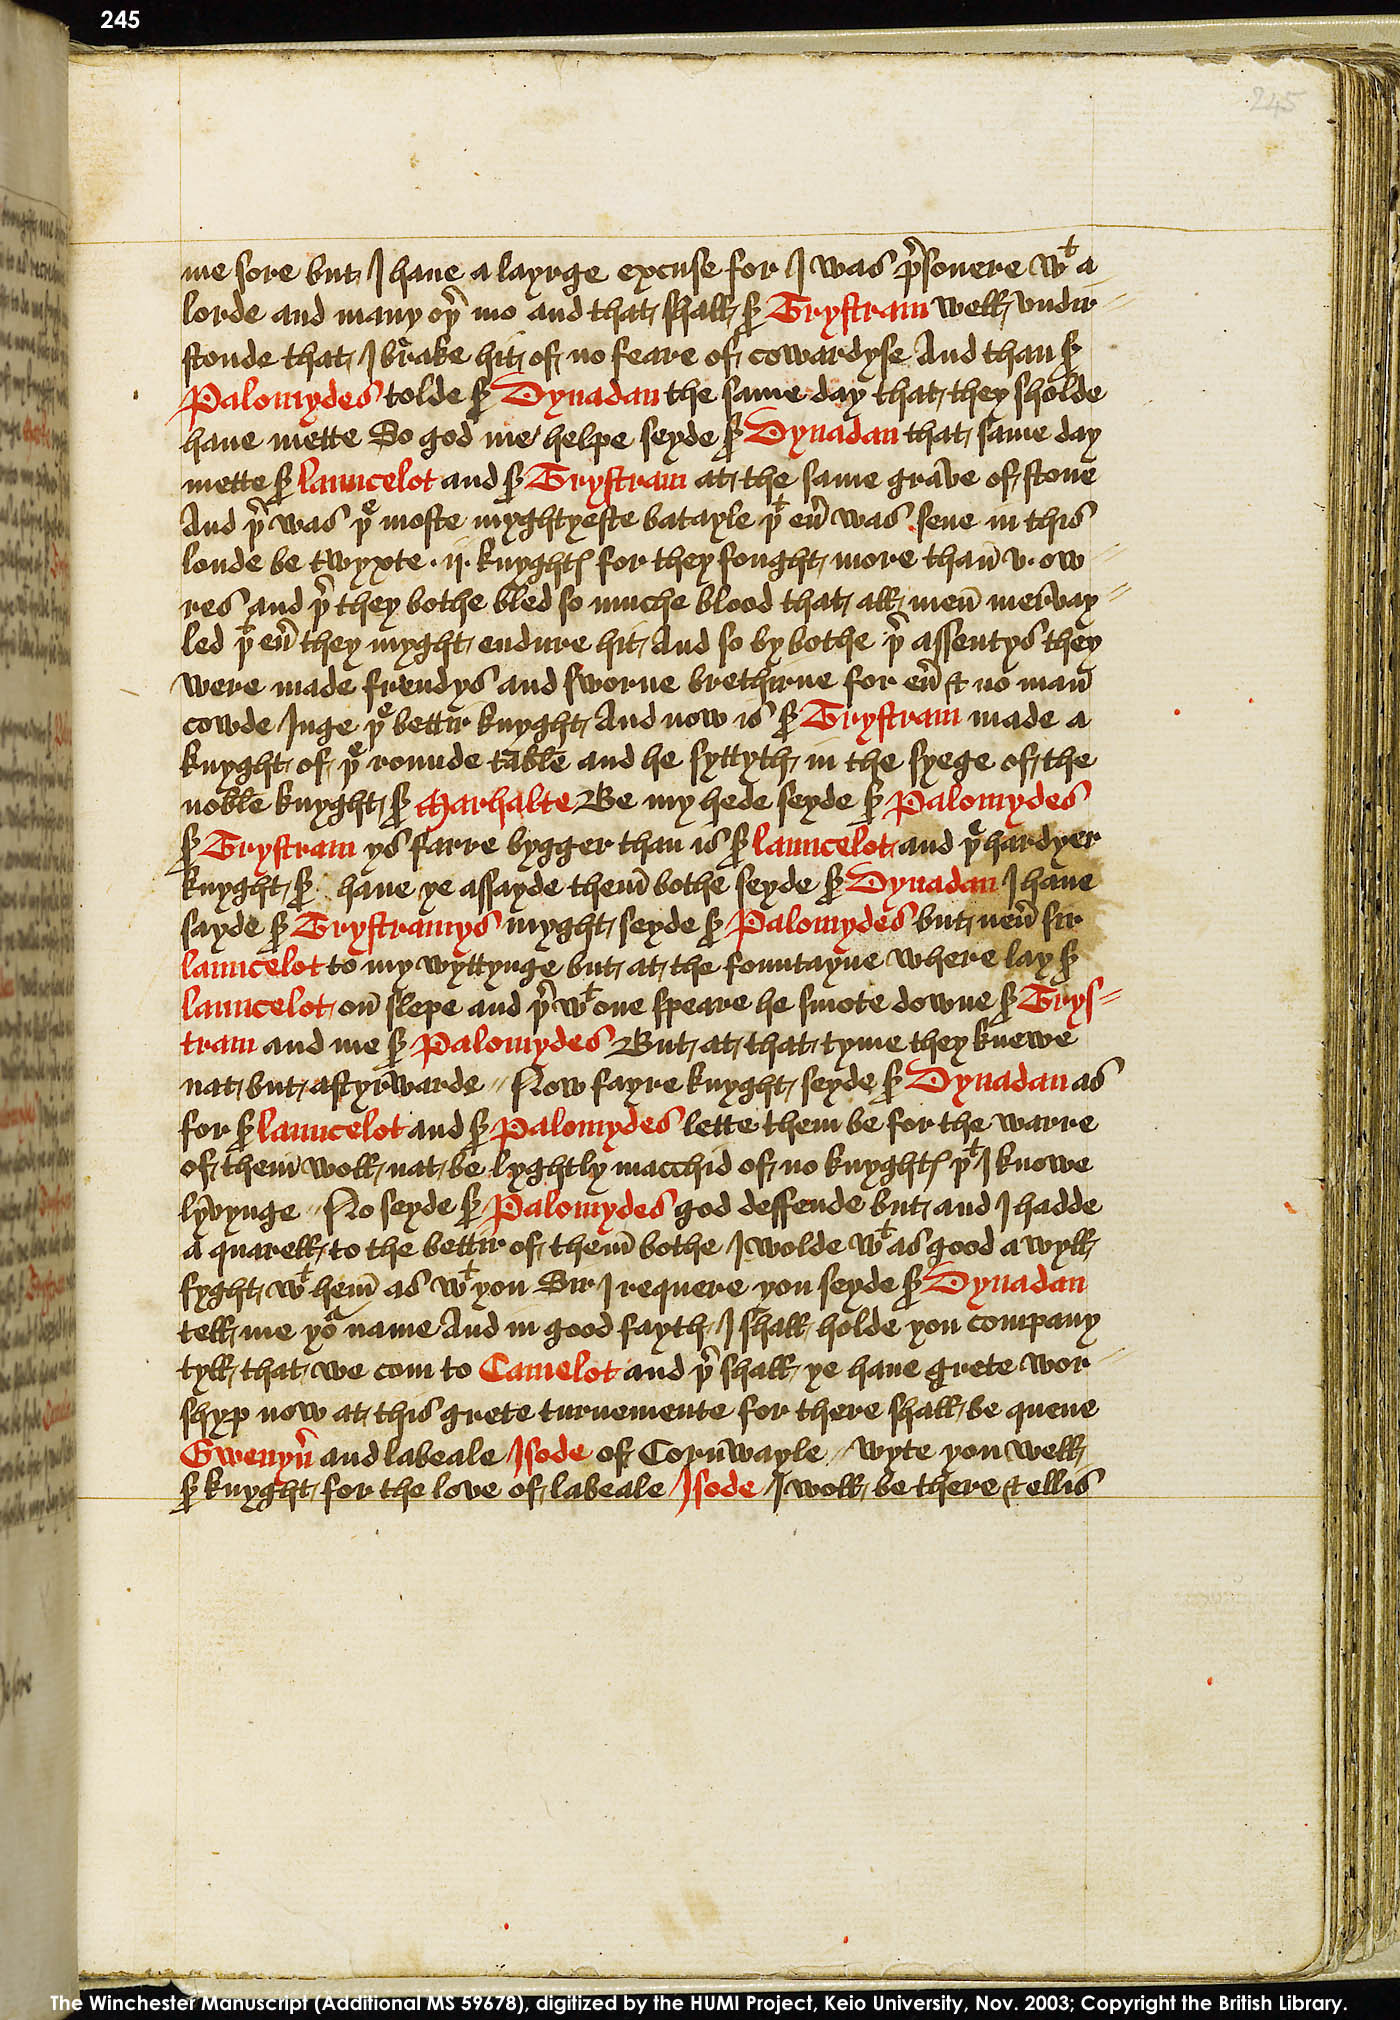 245
245
me sore but I haue a layrge excuse for I was p̾sonere wᵗ a
lorde and many oþ̾ mo and that shall Sͬ Trystram well vndir⸗
stonde that I brake hit of no feare of cowardyse And than Sͬ
Palomydes tolde Sͬ Dynadan the same day that they sholde
haue mette So god me helpe seyde Sͬ Dynadan that same day
mette Sͬ launcelot and Sͬ Trystram at the same grave of stone
And þ̾ was þᵉ moste myghtyeste batayle þᵗ eu̾ was sene in this
londe be twyxte · ij · knyghtꝭ for they fought more than̄ v · ow⸗
res and þ̾ they bothe bled so muche blood that all men̄ mervay⸗
led þᵗ eu̾ they myght endure hit And so by bothe þ̾ assentys they
were made frendys and sworne brethirne for eu̾ & no man̄
cowde Iuge þᵉ bettir knyght And now is Sͬ Trystram made a
knyght of þᵉ rounde table and he syttyth in the syege of the
noble knyght Sͬ Marhalte Be my hede seyde Sͬ Palomydes
Sͬ Trystram ys farre bygger than is Sͬ launcelot and þᵉ hardyer
knyght Sͬ haue ye assayde them̄ bothe seyde Sͬ Dynadan I haue
sayde Sͬ Trystramys myght seyde Sͬ Palomydes but neu̾ sir
launcelot to my wyttynge but at the fountayne where lay Sͬ
launcelot on̄ slepe and þ̾ wᵗ one speare he smote downe Sͬ Trys⸗
tram and me Sͬ Palomydes But at that tyme they knewe
nat but aftyrwarde // Now fayre knyght seyde Sͬ Dynadan as
for Sͬ launcelot and Sͬ Palomydes lette them be for the warre
of them̄ woll nat be lyghtly macchid of no knyghtꝭ þᵗ I knowe
lyvynge // No seyde Sͬ Palomydes god deffende but and I hadde
a quarell to the bettir of them̄ bothe I wolde wᵗ as good a wyll
fyght wᵗ hem̄ as wᵗ you Sir I requere you seyde Sͬ Dynadan
tell me yoͬ name And in good fayth I shall holde you company
tyll that we com to Camelot and þ̾ shall ye haue grete wor⸗
shyp now at this grete turnemente for there shall be quene
Gwenyu̾ and labeale Isode of Cornwayle // wyte you well
Sͬ knyght for the love of labeale Isode I woll be there & ellis
The Winchester Manuscript (Additional MS 59678), digitized by the HUMI Project, Keio University, Nov. 2003; Copyright the British Library.